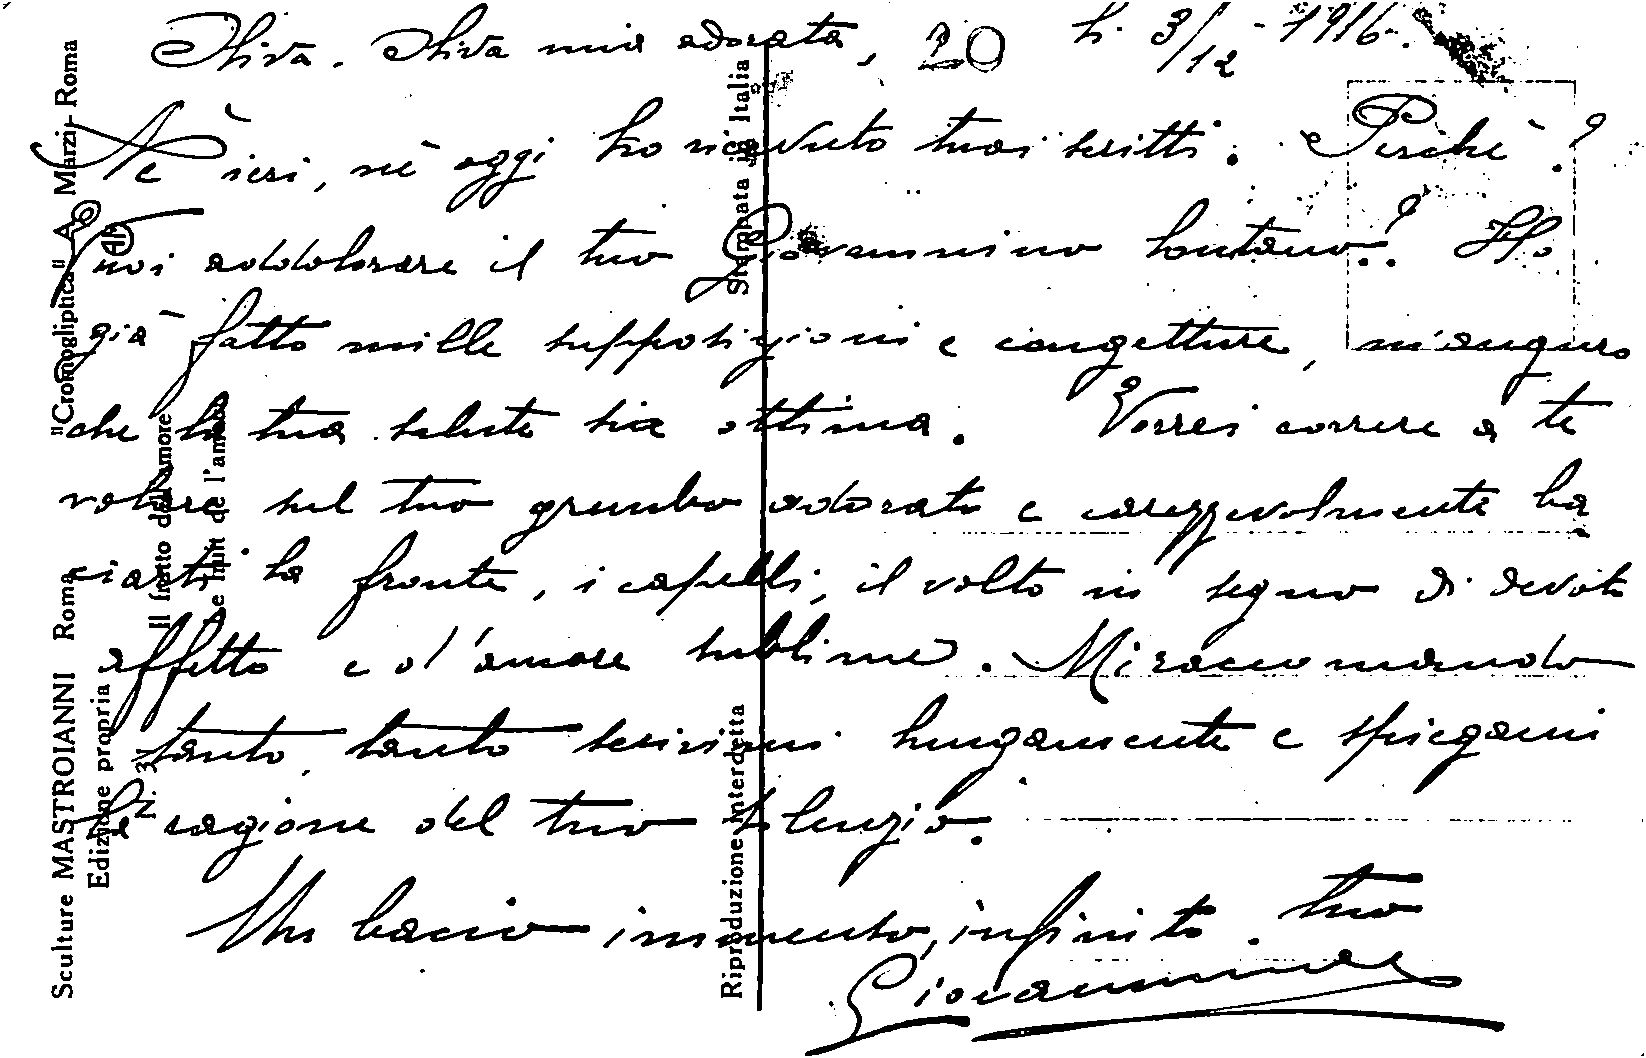 Oliva. Oliva mia adorata, 20 h. 3/12-1916.
Nè ieri, nè oggi ho ricevuto tuoi scritti. Perchè?
Vuoi addolorare il tuo Giovannino lontano? Ho
già fatto mille supposizioni e congetture, m'auguro
che la tua salute sia ottima. Vorrei correre a te
volare sul tuo grembo adorato e carezzevolmente ba
ciarti la fronte, i capelli, il volto in segno di devoto
affetto e d'amore sublime. Mi raccomando
tanto, tanto scrivimi lungamente e spiegami
la ragione del tuo silenzio.
Un bacio immenso, infinito. tuo
Giovannino
Sculture MASTROIANNI Roma "Cromogliphica" A. Marzi - Roma
Edizione propria
N. 3
Il frutto dell'amore
Le fruit de l'amour
Riproduzione interdetta
Stampata in Italia